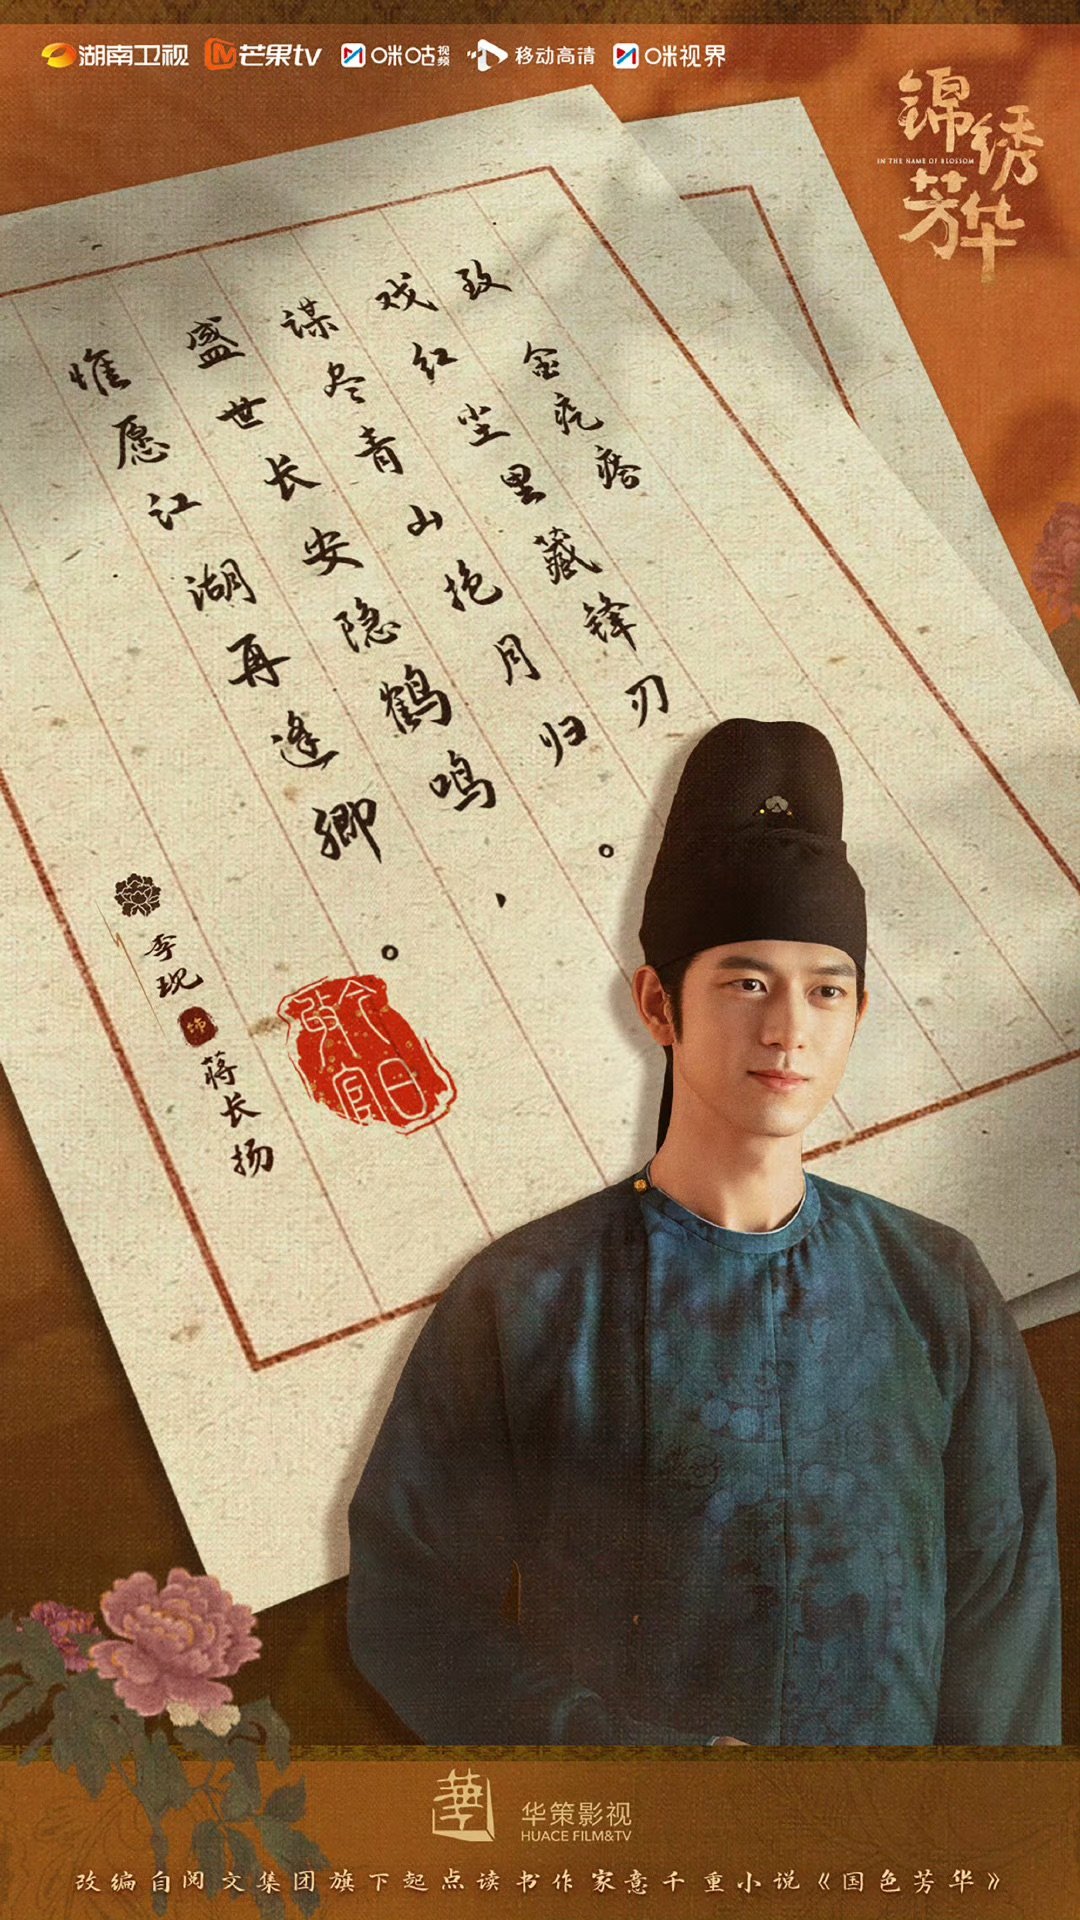 湖南卫视 芒果tv 咪咕视频 移动高清 咪视界
锦绣芳华
IN THE NAME OF BLOSSOM
致
金疙瘩
戏红尘里藏锋刃
谋尽青山抱月归。
盛世长安隐鹤鸣、
惟愿江湖再逢卿。
李现
饰
蒋长扬
今日
散官
華
华策影视
HUACE FILM&TV
改编自阅文集团旗下起点读书作家意千重小说《国色芳华》